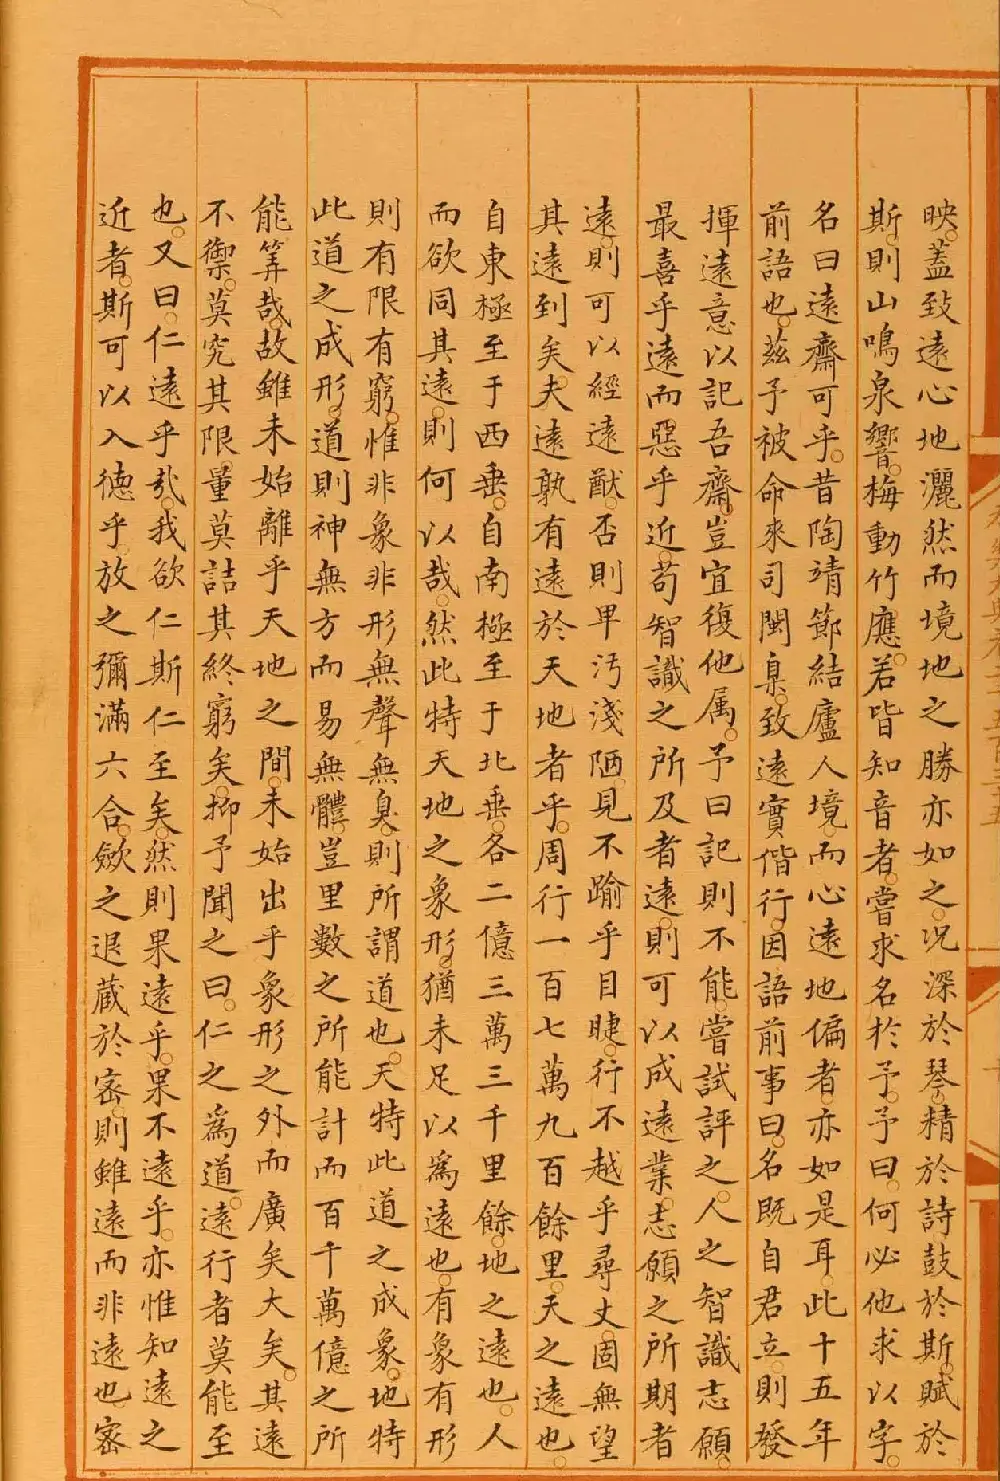 映。蓋致遠心地灑然而境地之勝亦如之。况深於琴。精於詩。鼓於斯。賦於
斯。則山鳴泉響。梅動竹應。若皆知音者。嘗求名於予。予曰。何必他求。以字
名曰遠齋可乎。昔陶靖節結廬人境。而心遠地偏者。亦如是耳。此十五年
前語也。兹予被命來司閩臬。致遠實偕行。因語前事曰。名既自君立。則發
揮遠意以記吾齋。豈宜復他属。予曰記則不能。嘗試評之。人之智識志願。
最喜乎遠而惡乎近。苟智識之所及者遠。則可以成遠業。志願之所期者
遠。則可以經遠猷。否則卑汚淺陋。見不踰乎目睫。行不越乎尋丈。固無望
其遠到矣。夫遠孰有遠於天地者乎。周行一百七萬九百餘里。天之遠也。
自東極至于西垂。自南極至于北垂。各二億三萬三千里餘。地之遠也。人
而欲同其遠。則何以哉。然此特天地之象形。猶未足以爲遠也。有象有形
則有限有窮。惟非象非形無聲無臭。則所謂道也。天特此道之成象。地特
此道之成形。道則神無方而易無體。豈里數之所能計而百千萬億之所
能筭哉。故雖未始離乎天地之間。未始出乎象形之外而廣矣大矣。其遠
不禦。莫究其限量莫詰其終窮矣。抑予聞之曰。仁之爲道。遠行者莫能至
也。又曰。仁遠乎哉。我欲仁斯仁至矣。然則果遠乎。果不遠乎。亦惟知遠之
近者。斯可以入德乎。放之彌滿六合。歛之退藏於密。則雖遠而非遠也密